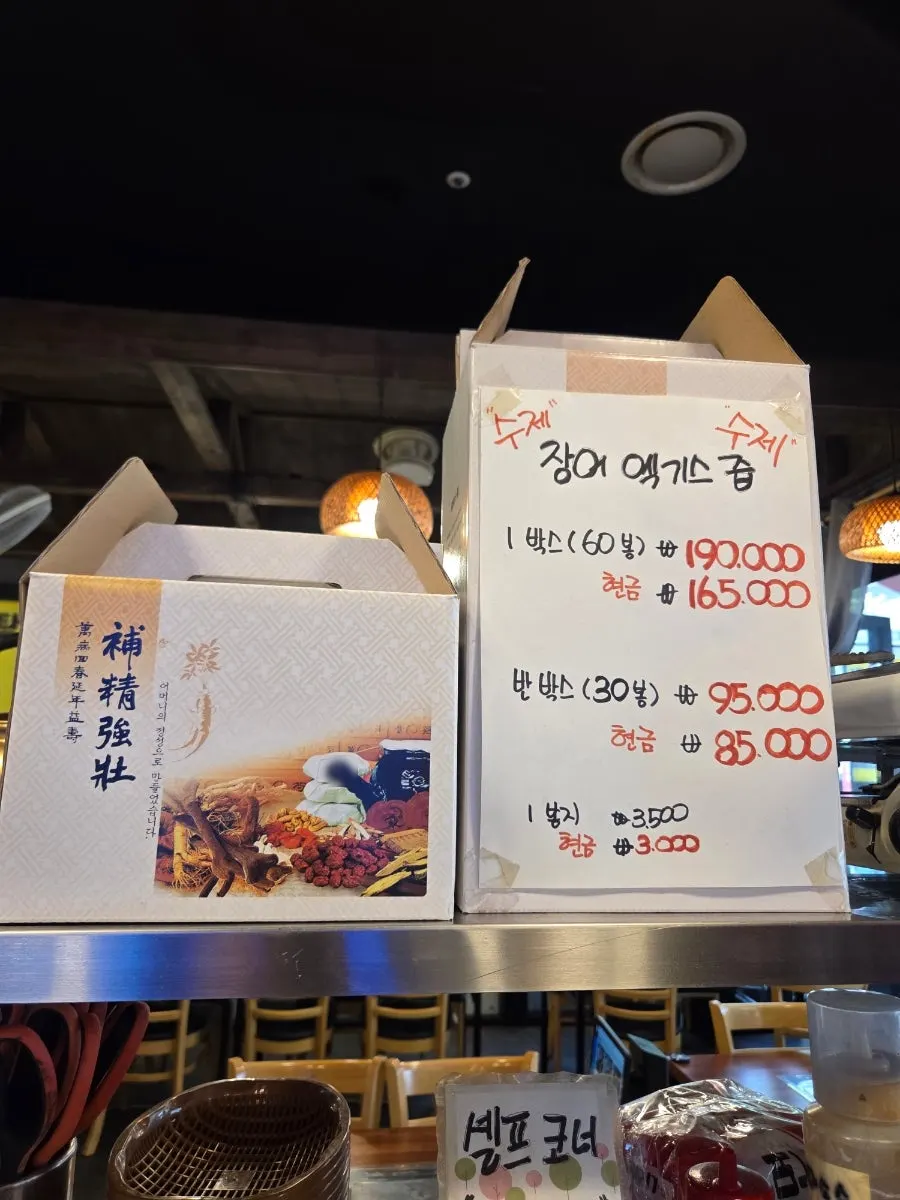 補精強壯
萬病回春延年益壽
어머니의 정성으로 만들었습니다.
"수제" "수제"
장어 엑기스 즙
1 박스(60봉) ₩190.000
현금 ₩165.000
반 박스(30봉) ₩95.000
현금 ₩85.000
1 봉지 ₩3,500
현금 ₩3.000
셀프 코너